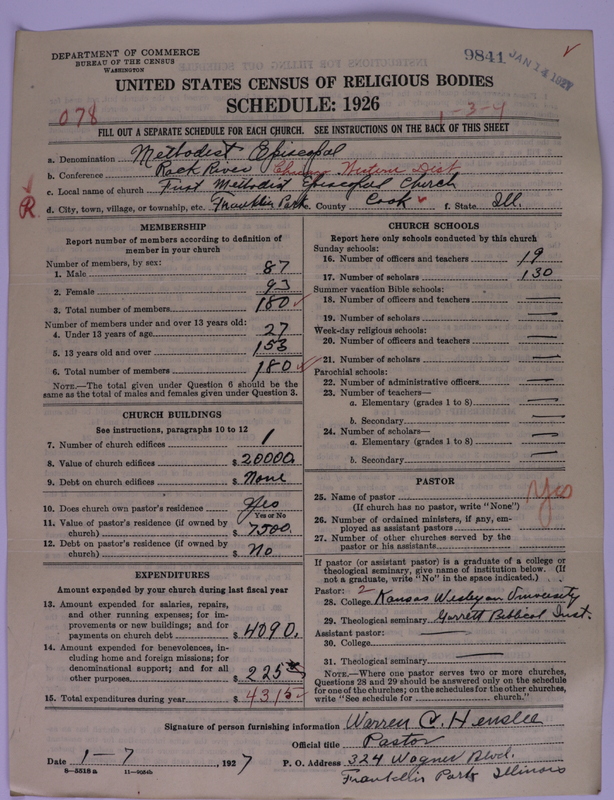 DEPARTMENT OF COMMERCE
BUREAU OF THE CENSUS
WASHINGTON
9841 JAN 14 1927
UNITED STATES CENSUS OF RELIGIOUS BODIES
SCHEDULE: 1926
078
1-3-4
FILL OUT A SEPARATE SCHEDULE FOR EACH CHURCH. SEE INSTRUCTIONS ON THE BACK OF THIS SHEET
a. Denomination Methodist Episcopal
b. Conference Rock River Chicago Western Dist
c. Local name of church First Methodist Episcopal Church
R d. City, town, village, or township, etc. Franklin Park e. County Cook f. State Ill.
MEMBERSHIP
Report number of members according to definition of
member in your church
Number of members, by sex:
1. Male 87
2. Female 93
3. Total number of members 180
Number of members under and over 13 years old:
4. Under 13 years of age 27
5. 13 years old and over 153
6. Total number of members 180
NOTE.—The total given under Question 6 should be
same as the total of males and females given under Question 3.
CHURCH BUILDINGS
See instructions, paragraphs 10 to 12
7. Number of church edifices 1
8. Value of church edifices $ 20000.
9. Debt on church edifices $ None
10. Does church own pastor's residence Yes
Yes or No
11. Value of pastor's residence (if owned by
church) $ 7500.
12. Debt on pastor's residence (if owned by
church) $ No
EXPENDITURES
Amount expended by your church during last fiscal year
13. Amount expended for salaries, repairs,
and other running expenses; for im-
provements or new buildings; and for
payments on church debt $ 4090.
14. Amount expended for benevolences, in-
cluding home and foreign missions; for
denominational support; and for all
other purposes $ 225
15. Total expenditures during year $ 4315
CHURCH SCHOOLS
Report here only schools conducted by this church
Sunday schools:
16. Number of officers and teachers 19
17. Number of scholars 130
Summer vacation Bible schools:
18. Number of officers and teachers —
19. Number of scholars —
Week-day religious schools:
20. Number of officers and teachers —
21. Number of scholars —
Parochial schools:
22. Number of administrative officers —
23. Number of teachers—
a. Elementary (grades 1 to 8) —
b. Secondary —
24. Number of scholars—
a. Elementary (grades 1 to 8) —
b. Secondary —
PASTOR
25. Name of pastor Yes
(If church has no pastor, write "None")
26. Number of ordained ministers, if any, em-
ployed as assistant pastors
27. Number of other churches served by the
pastor or his assistants
If pastor (or assistant pastor) is a graduate of a college or
theological seminary, give name of institution below. (If
not a graduate, write "No" in the space indicated.)
Pastor: 2
28. College Kansas Wesleyan University
29. Theological seminary Garrett Biblical Inst.
Assistant pastor: —
30. College
31. Theological seminary —
NOTE.—Where one pastor serves two or more churches,
Questions 28 and 29 should be answered only on the schedule
for one of the churches; on the schedules for the other churches,
write "See schedule for church."
Signature of person furnishing information Warren C. Henslee
Official title Pastor
Date 1-7, 1927 P. O. Address 324 Wagner Blvd.
Franklin Park Illinois
8—5518 a 11—9054b